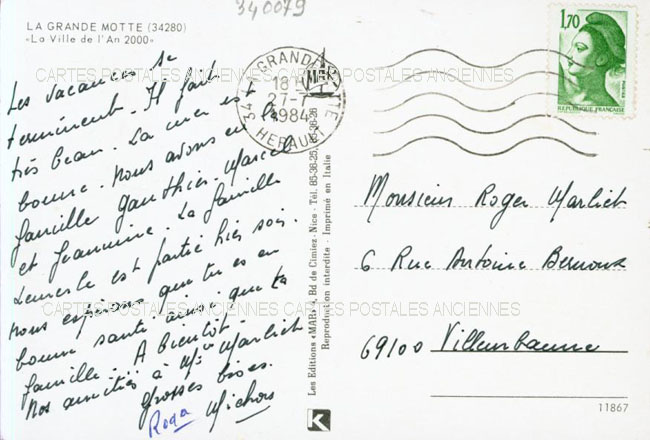 340079
LA GRANDE MOTTE (34280)
«La Ville de l'An 2000»
CARTES POSTALES ANCIENNES CARTES POSTALES ANCIENNES
Les vacances se
terminent. Il fait
très beau. La mer est
bonne. Nous avons eu la
famille Gauthier. Marcel
et Jeannine. La famille
est partie hier soir.
nous espérons que tu es en
bonne santé ainsi que ta
famille. A Bientôt.
Nos amitiés à Mme Marliet
Grosses bises.
Michou
34 LA GRANDE MOTTE
18H
27-7
1984
HERAULT
1,70
REPUBLIQUE FRANÇAISE
Les Editions «MAR» 4, Bd de Cimiez - Nice - Tél. 85-38-25, 85-38-26
Reproduction interdite - Imprimé en Italie
Monsieur Roger Marliet
6 Rue Antoine Bernoux
CARTES POSTALES ANCIENNES CARTES POSTALES ANCIENNES
69100 Villeurbanne
K
11867